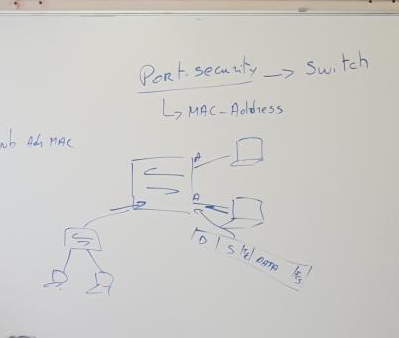 Port-security → Switch
↳ MAC-Address
nb Adr MAC
A
A
D | S | | DATA |